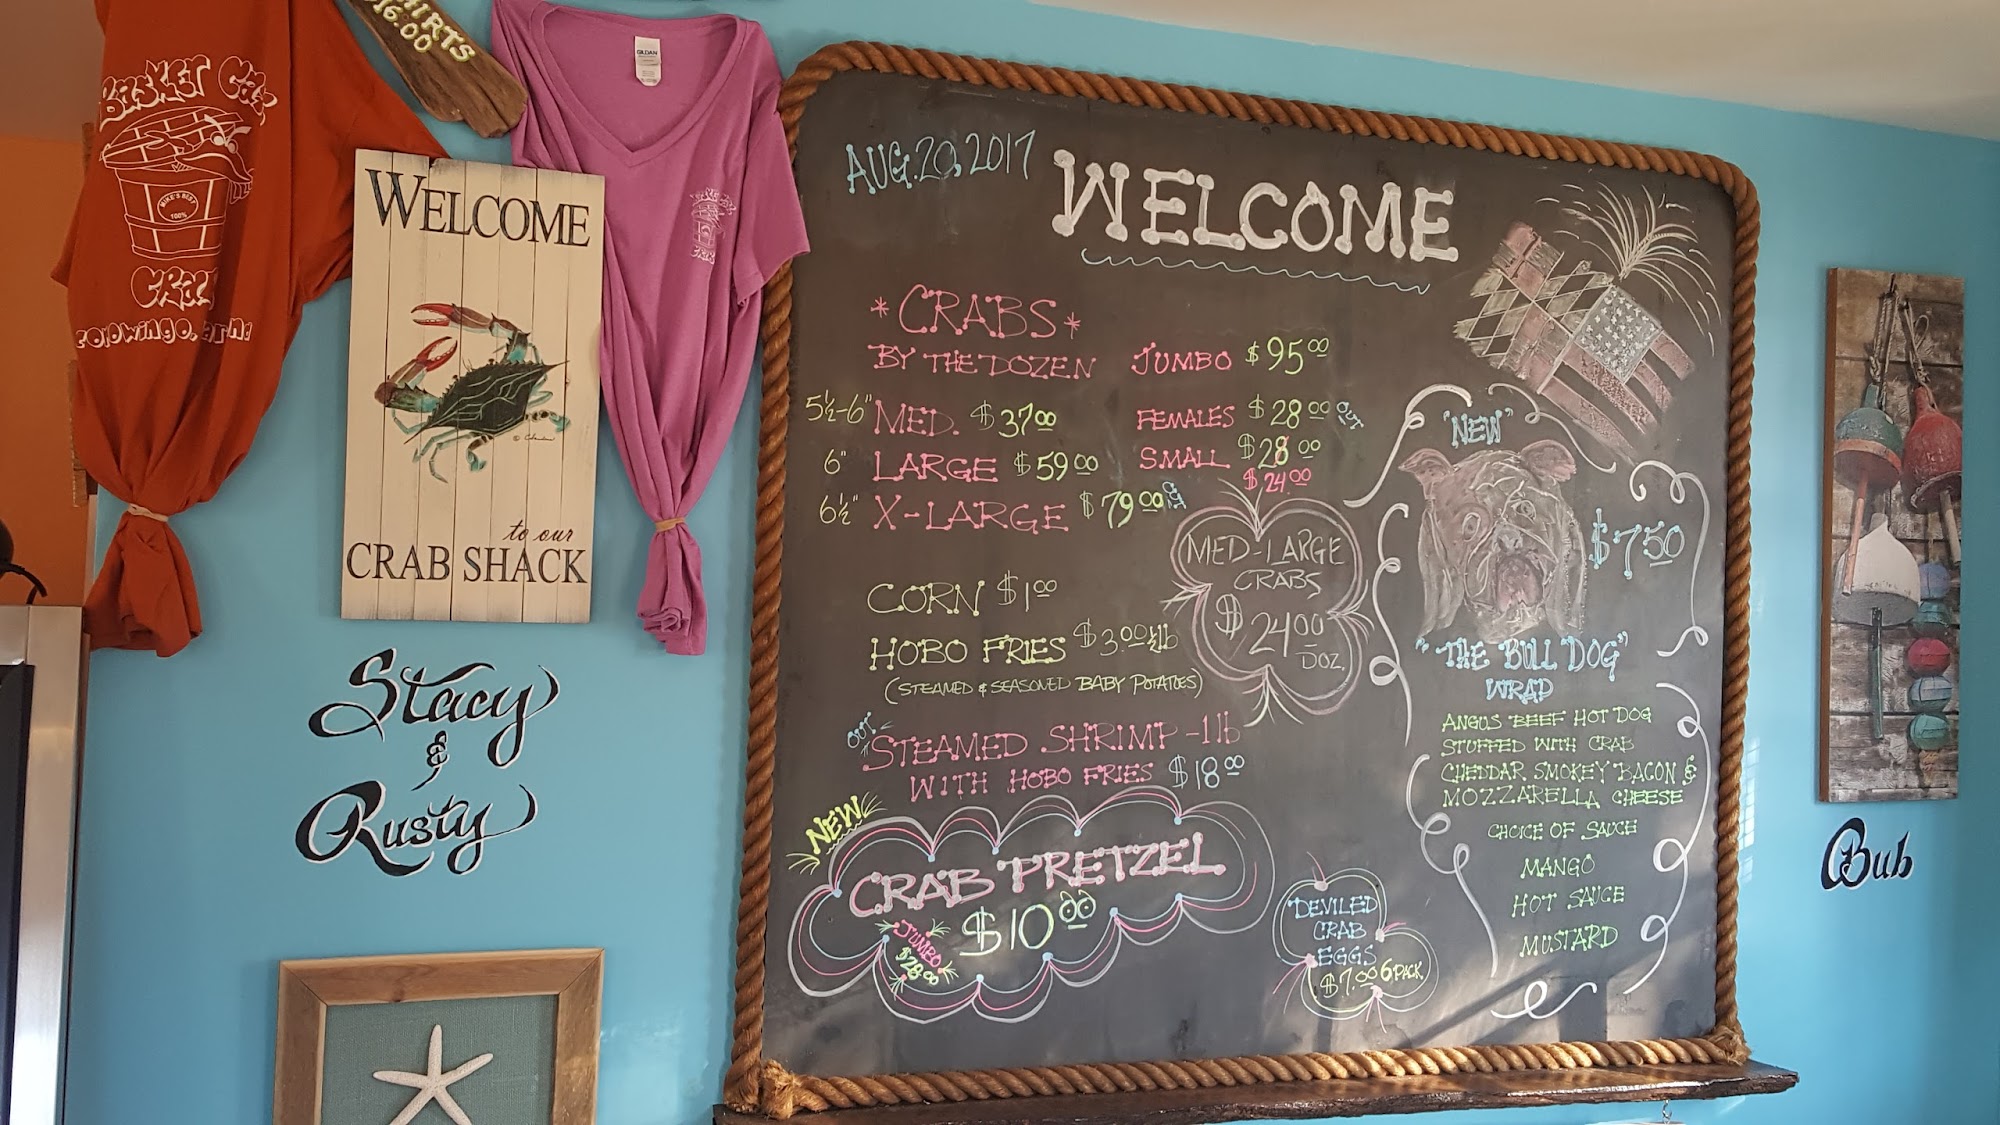 SHIRTS
$16.00
BASKET CASE
MIKE'S BEST
100%
CRABS
GILDAN
WELCOME
to our
CRAB SHACK
Stacy
&
Rusty
AUG. 20, 2017
WELCOME
* CRABS *
BY THE DOZEN
5½-6" MED. $37.00
6" LARGE $59.00
6½" X-LARGE $79.00
JUMBO $95.00
FEMALES $28.00 OUT
SMALL $28.00
$24.00
MED-LARGE
CRABS
$24.00
DOZ.
CORN $1.00
HOBO FRIES $3.00 ½ lb
(STEAMED & SEASONED BABY POTATOES)
OUT
STEAMED SHRIMP - 1 lb
WITH HOBO FRIES $18.00
NEW
CRAB PRETZEL
$10.00
JUMBO
$28.00
DEVILED
CRAB
EGGS
$7.00 6 PACK
"NEW"
$7.50
"THE BULL DOG"
WRAP
ANGUS BEEF HOT DOG
STUFFED WITH CRAB
CHEDDAR SMOKEY BACON &
MOZZARELLA CHEESE
CHOICE OF SAUCE
MANGO
HOT SAUCE
MUSTARD
Bub